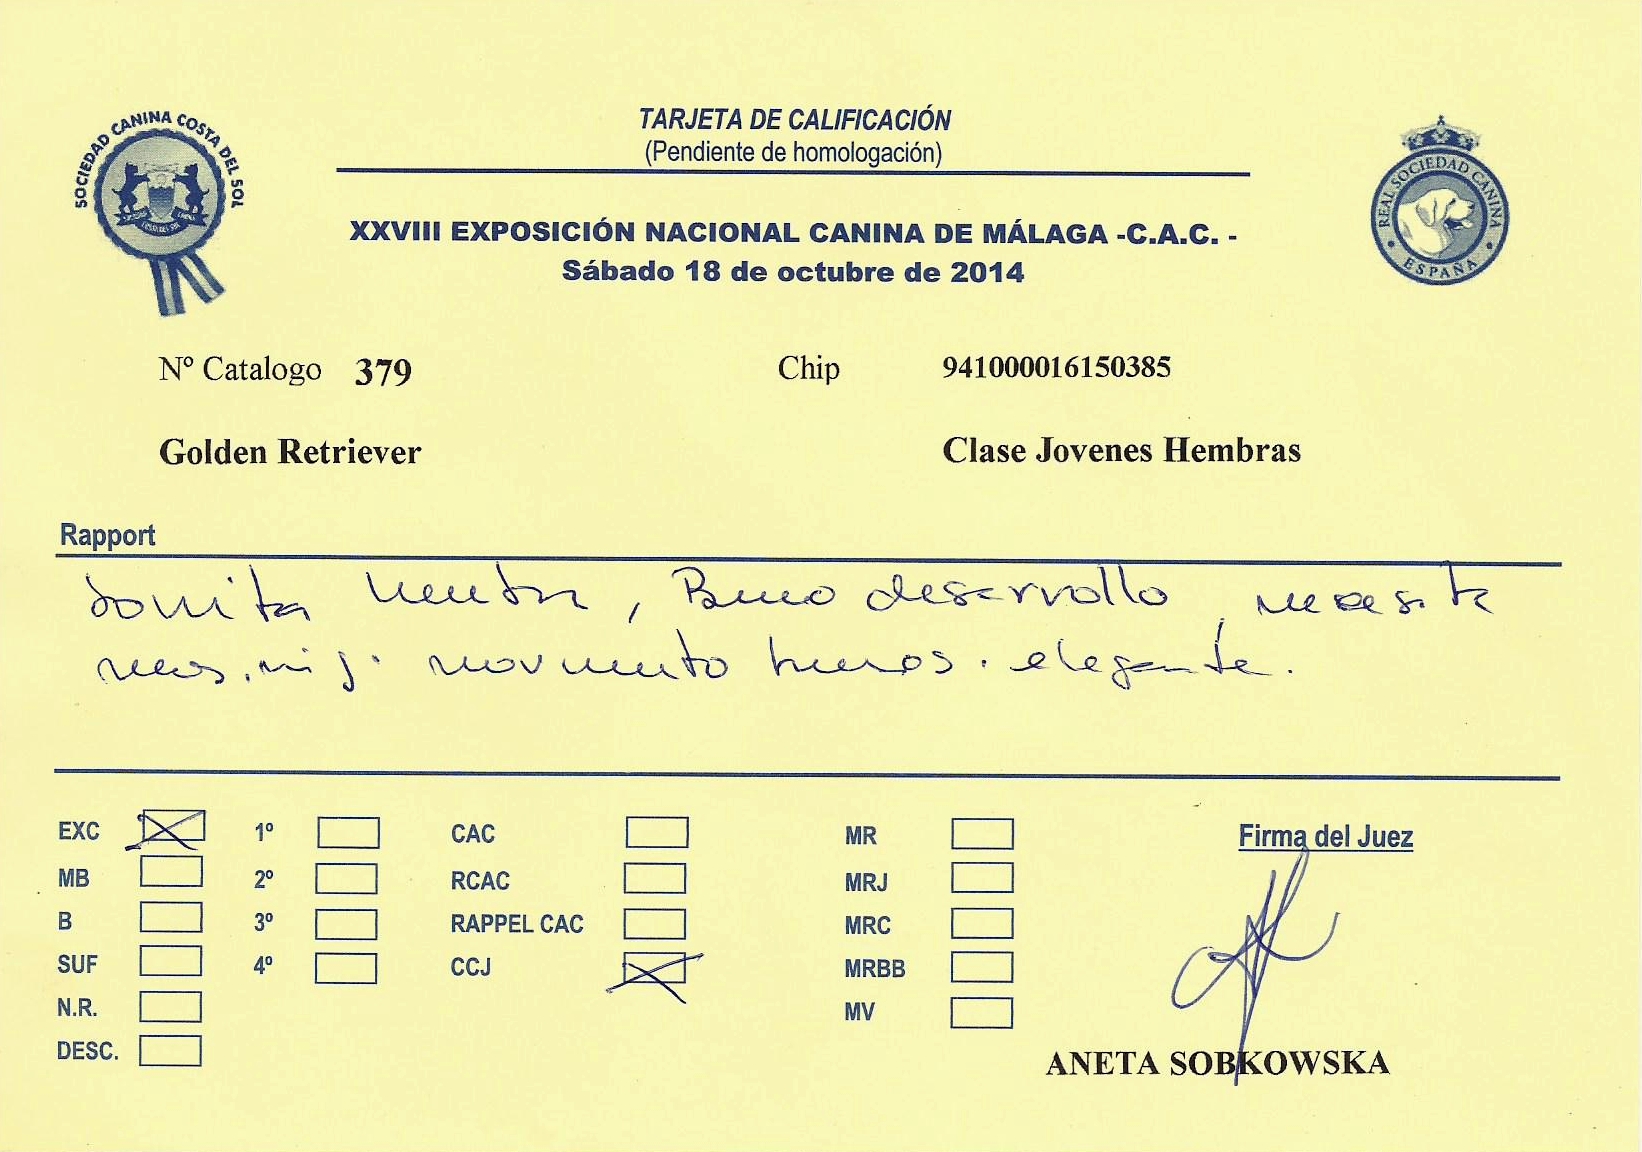 SOCIEDAD CANINA COSTA DEL SOL
TARJETA DE CALIFICACIÓN
(Pendiente de homologación)
REAL SOCIEDAD CANINA
ESPAÑA
XXVIII EXPOSICIÓN NACIONAL CANINA DE MÁLAGA -C.A.C. -
Sábado 18 de octubre de 2014
Nº Catalogo 379 Chip 941000016150385
Golden Retriever Clase Jovenes Hembras
Rapport
Bonita , Bueno desarrollo, necesita
mas. movimento . elegante.
EXC 1º CAC MR Firma del Juez
MB 2º RCAC MRJ
B 3º RAPPEL CAC MRC
SUF 4º CCJ MRBB
N.R. MV
DESC.
ANETA SOBKOWSKA